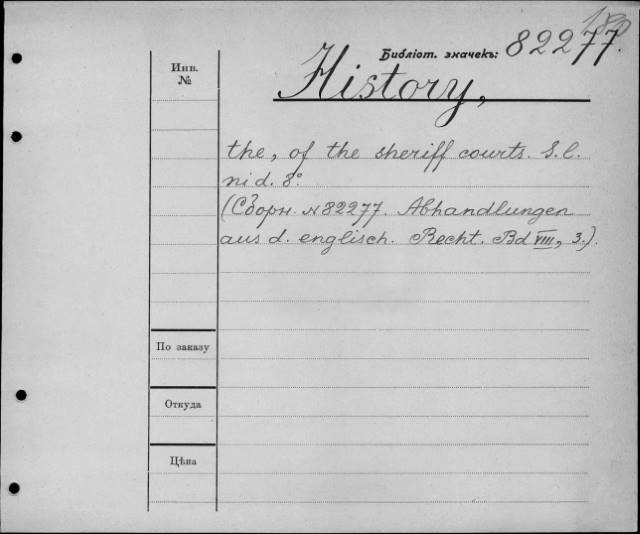 Библіот. значекъ: 82277.
Инв. №
History,
the, of the sheriff courts. S. l.
ni d. 8°.
(Сборн. №82277. Abhandlungen
aus d. englisch. Recht. Bd VIII, 3.).
По заказу
Откуда
Цѣна